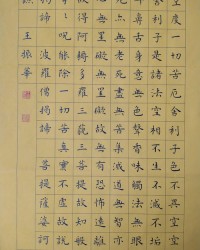 空度一切苦厄舍利子色不異空空
利子是諸法空相不生不滅不垢
舌身意無色聲香味觸法無眼
亦無老死盡無苦集滅道無智亦
罣礙無罣礙故無有恐怖遠離
得阿耨多羅三藐三菩提故知般
呪能除一切苦真實不虛故說
諦波羅僧揭諦菩提薩婆訶
王振華